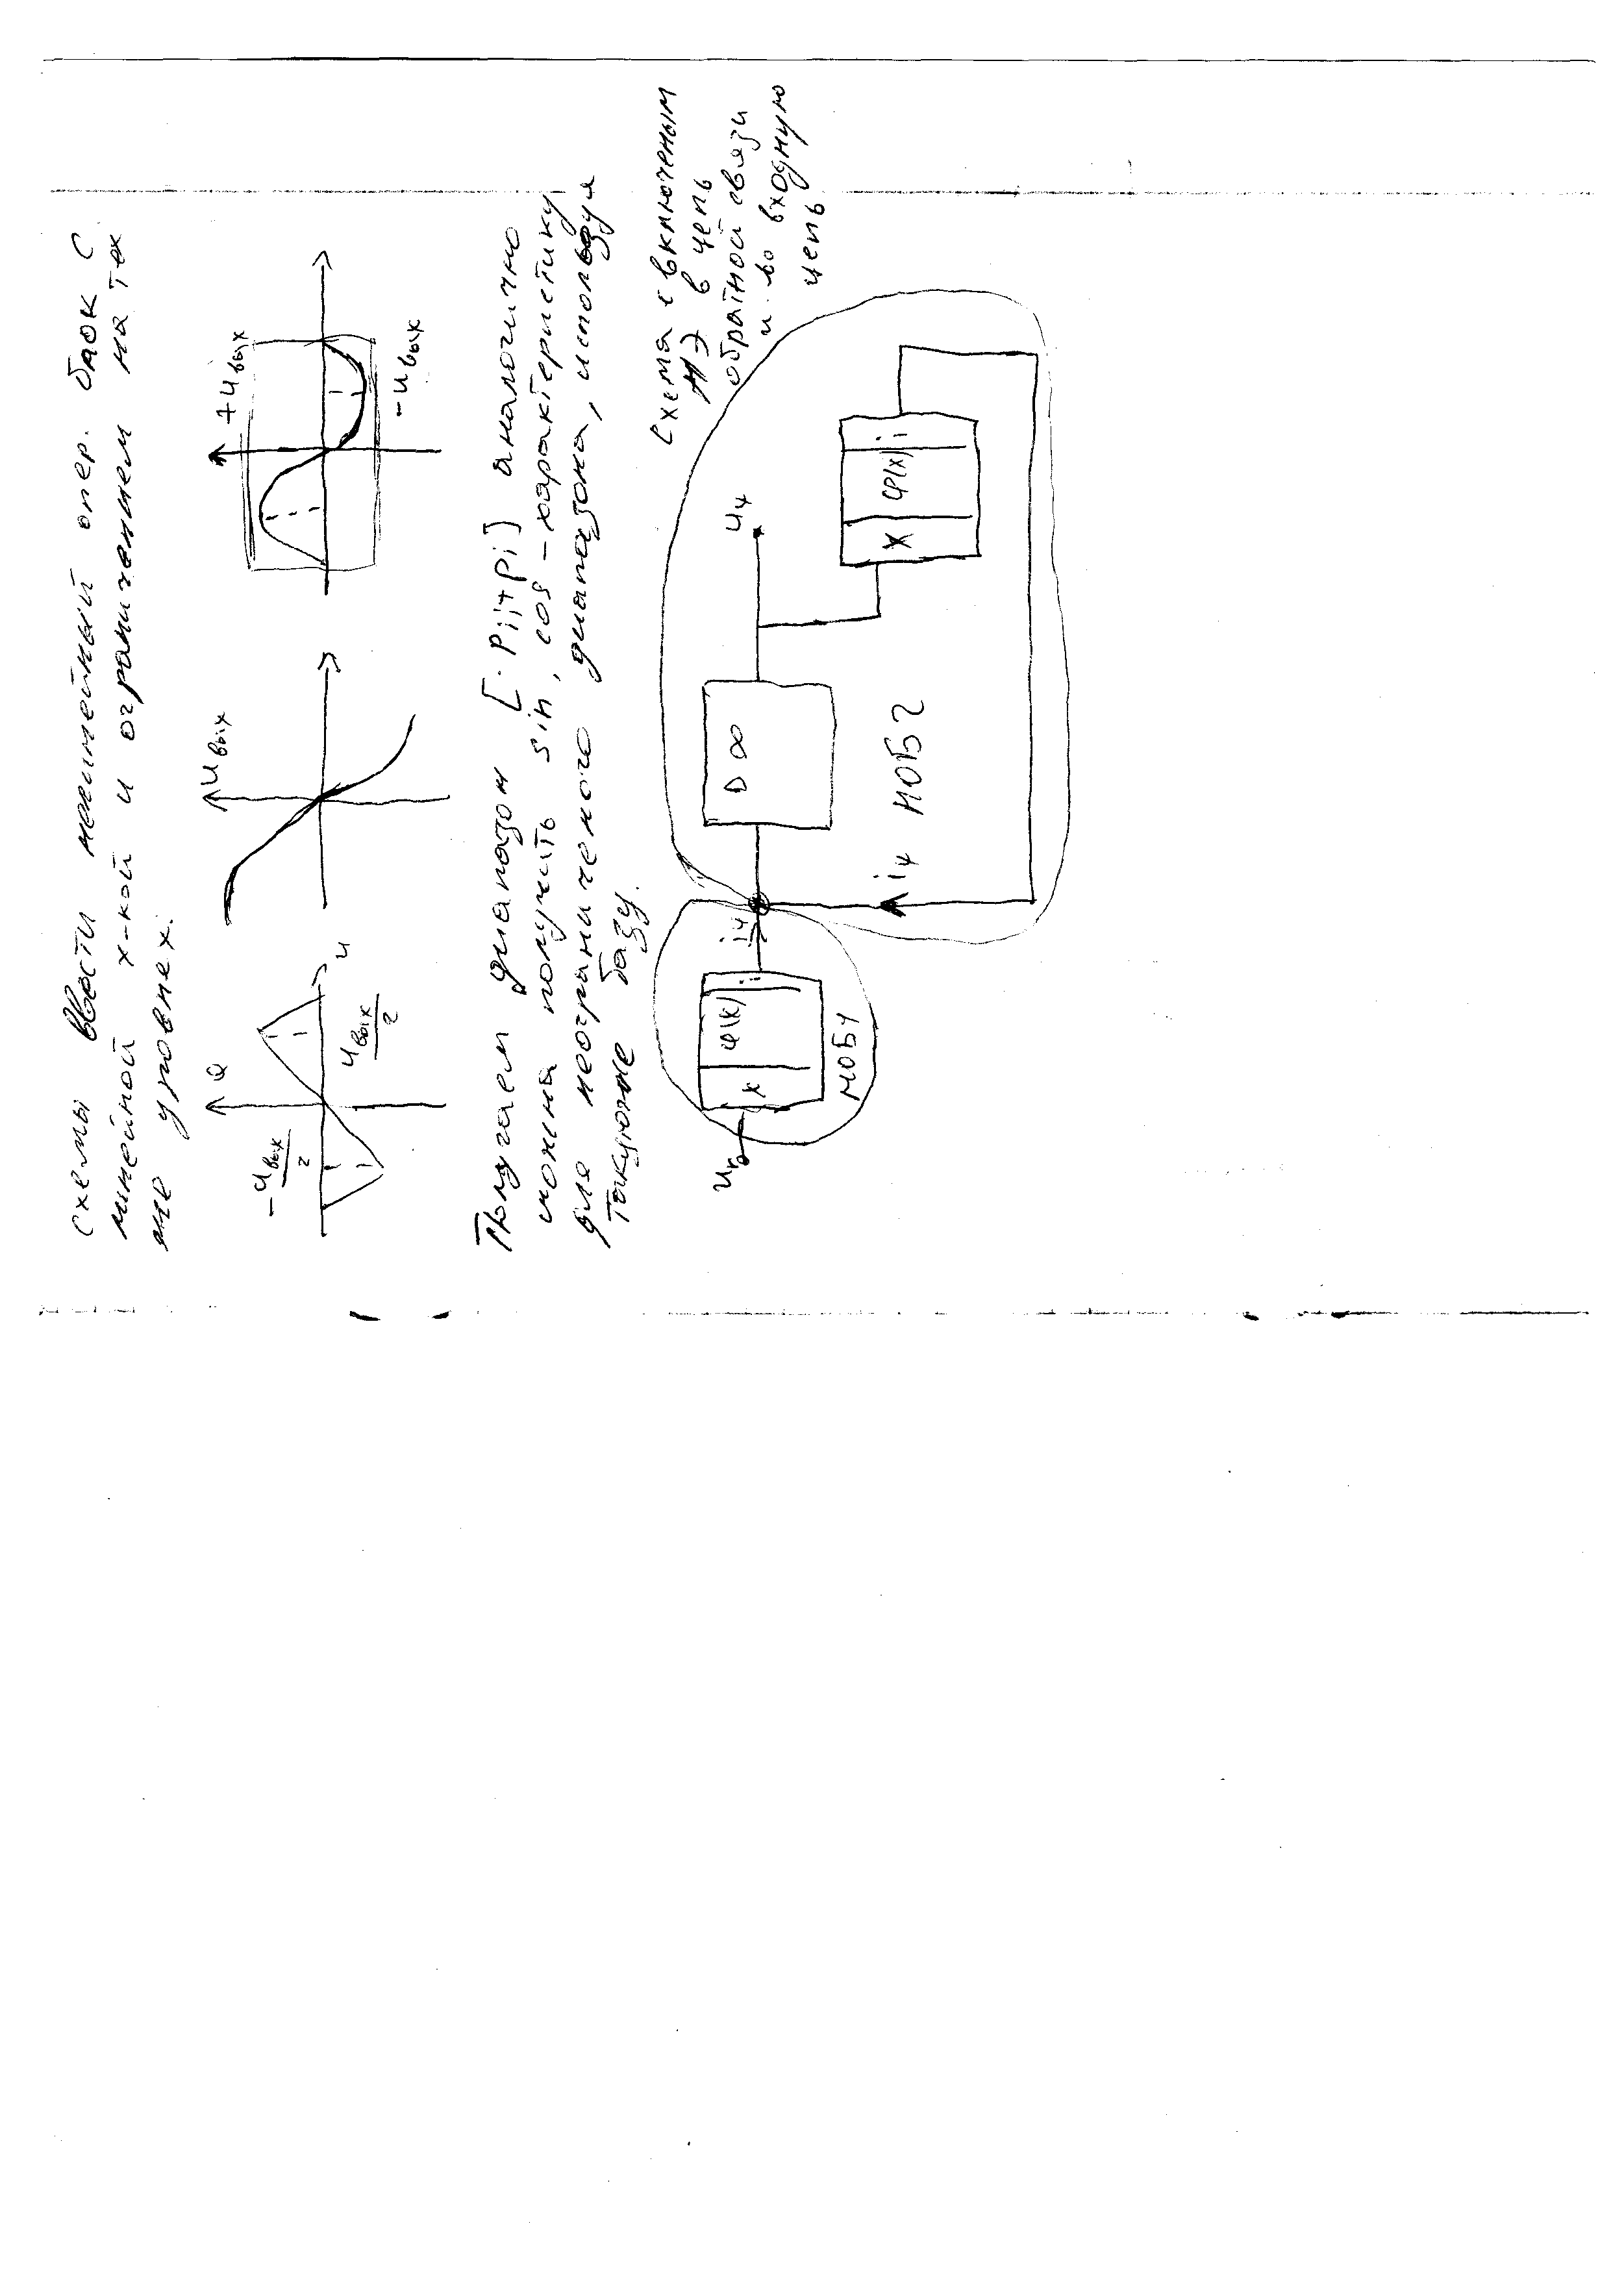 схемы ввести нелинейный опер. блок с
линейной х-кой и ограничением на тех
же уровнях.
Q
-Uвых/2
Uвых/2
U
Uвых
+Uвых
-Uвых
Получаем диапазон [-Pi;+Pi] аналогично
можна получить sin, cos-характеристику
для неограниченого диапазона, используя
такуюже базу.
Схема с включеным
НЭ в цепь
обратной связи
и во входную
цепь
X φ(x) i
НОБ1
D∞
X φ(x) i
НОБ2